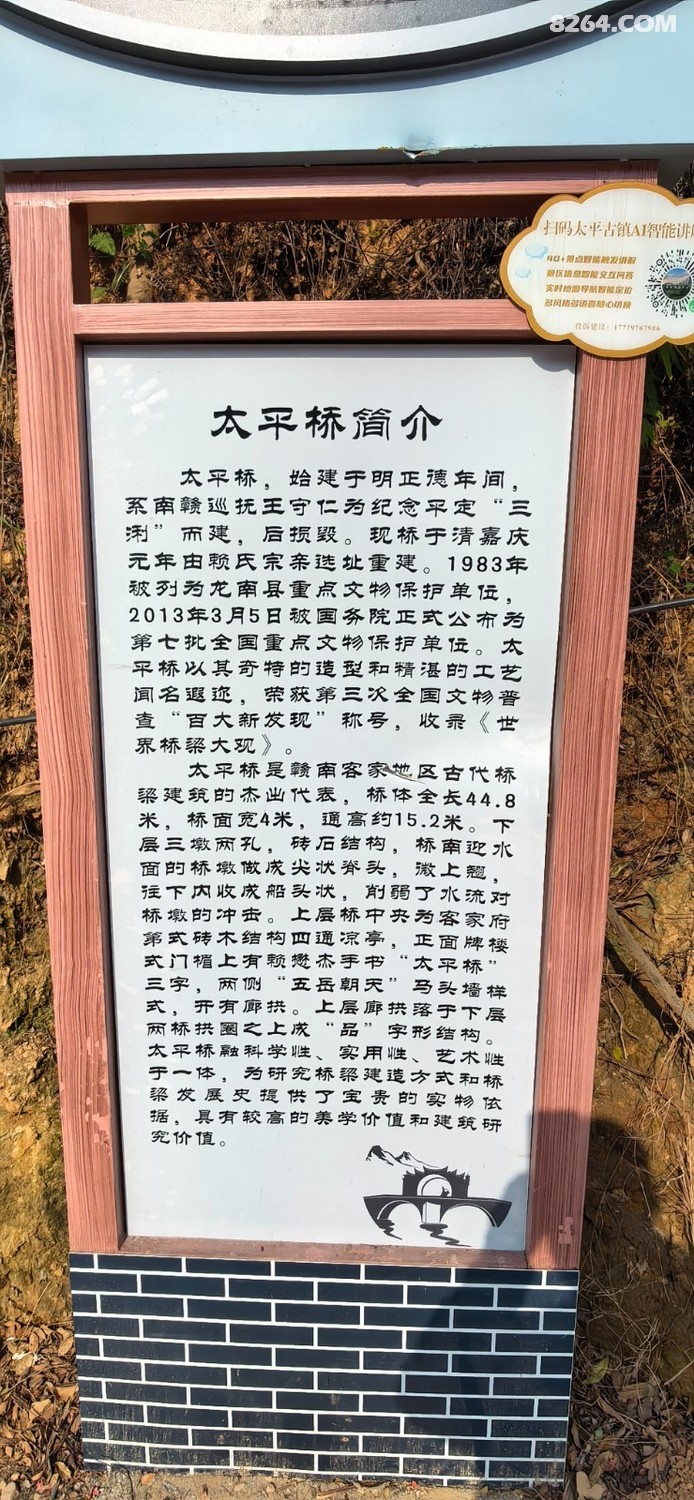 8264.COM
扫码太平古镇AI智能讲
40+景点智能触发讲解
景区信息智能交互问答
实时地图导航智能定位
多风格多语言随心切换
投诉建议：17779767986
太平桥简介
太平桥，始建于明正德年间，
系南赣巡抚王守仁为纪念平定“三
浰”而建，后损毁。现桥于清嘉庆
元年由赖氏宗亲选址重建。1983年
被列为龙南县重点文物保护单位，
2013年3月5日被国务院正式公布为
第七批全国重点文物保护单位。太
平桥以其奇特的造型和精湛的工艺
闻名遐迩，荣获第三次全国文物普
查“百大新发现”称号，收录《世
界桥梁大观》。
太平桥是赣南客家地区古代桥
梁建筑的杰出代表，桥体全长44.8
米，桥面宽4米，通高约15.2米。下
层三墩两孔，砖石结构，桥南迎水
面的桥墩做成尖状脊头，微上翘，
往下内收成船头状，削弱了水流对
桥墩的冲击。上层桥中央为客家府
第式砖木结构四通凉亭，正面牌楼
式门楣上有赖懋杰手书“太平桥”
三字，两侧“五岳朝天”马头墙样
式，开有廊拱。上层廊拱落于下层
两桥拱圈之上成“品”字形结构。
太平桥融科学性、实用性、艺术性
于一体，为研究桥梁建造方式和桥
梁发展史提供了宝贵的实物依
据，具有较高的美学价值和建筑研
究价值。